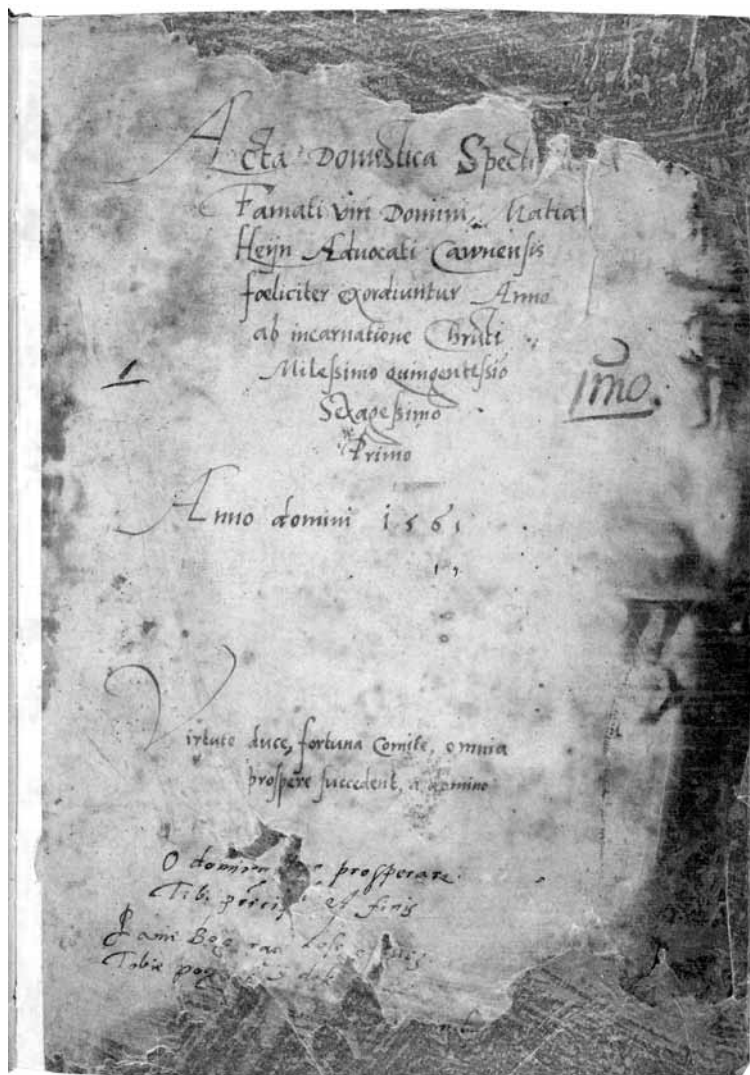 Acta Domestica
Famati viri Domini Matiæ
Heijn Advocati Cawnensis
fœliciter exordiuntur Anno
ab incarnatione Christi
1
Milessimo quingentessio
1mo.
Sexagessimo
Primo
Anno domini 1561
Virtute duce, fortuna Comite, omnia
prospere succedent, a domino
O prosperare.
Tibi et finis
Panie Boze
Tobie